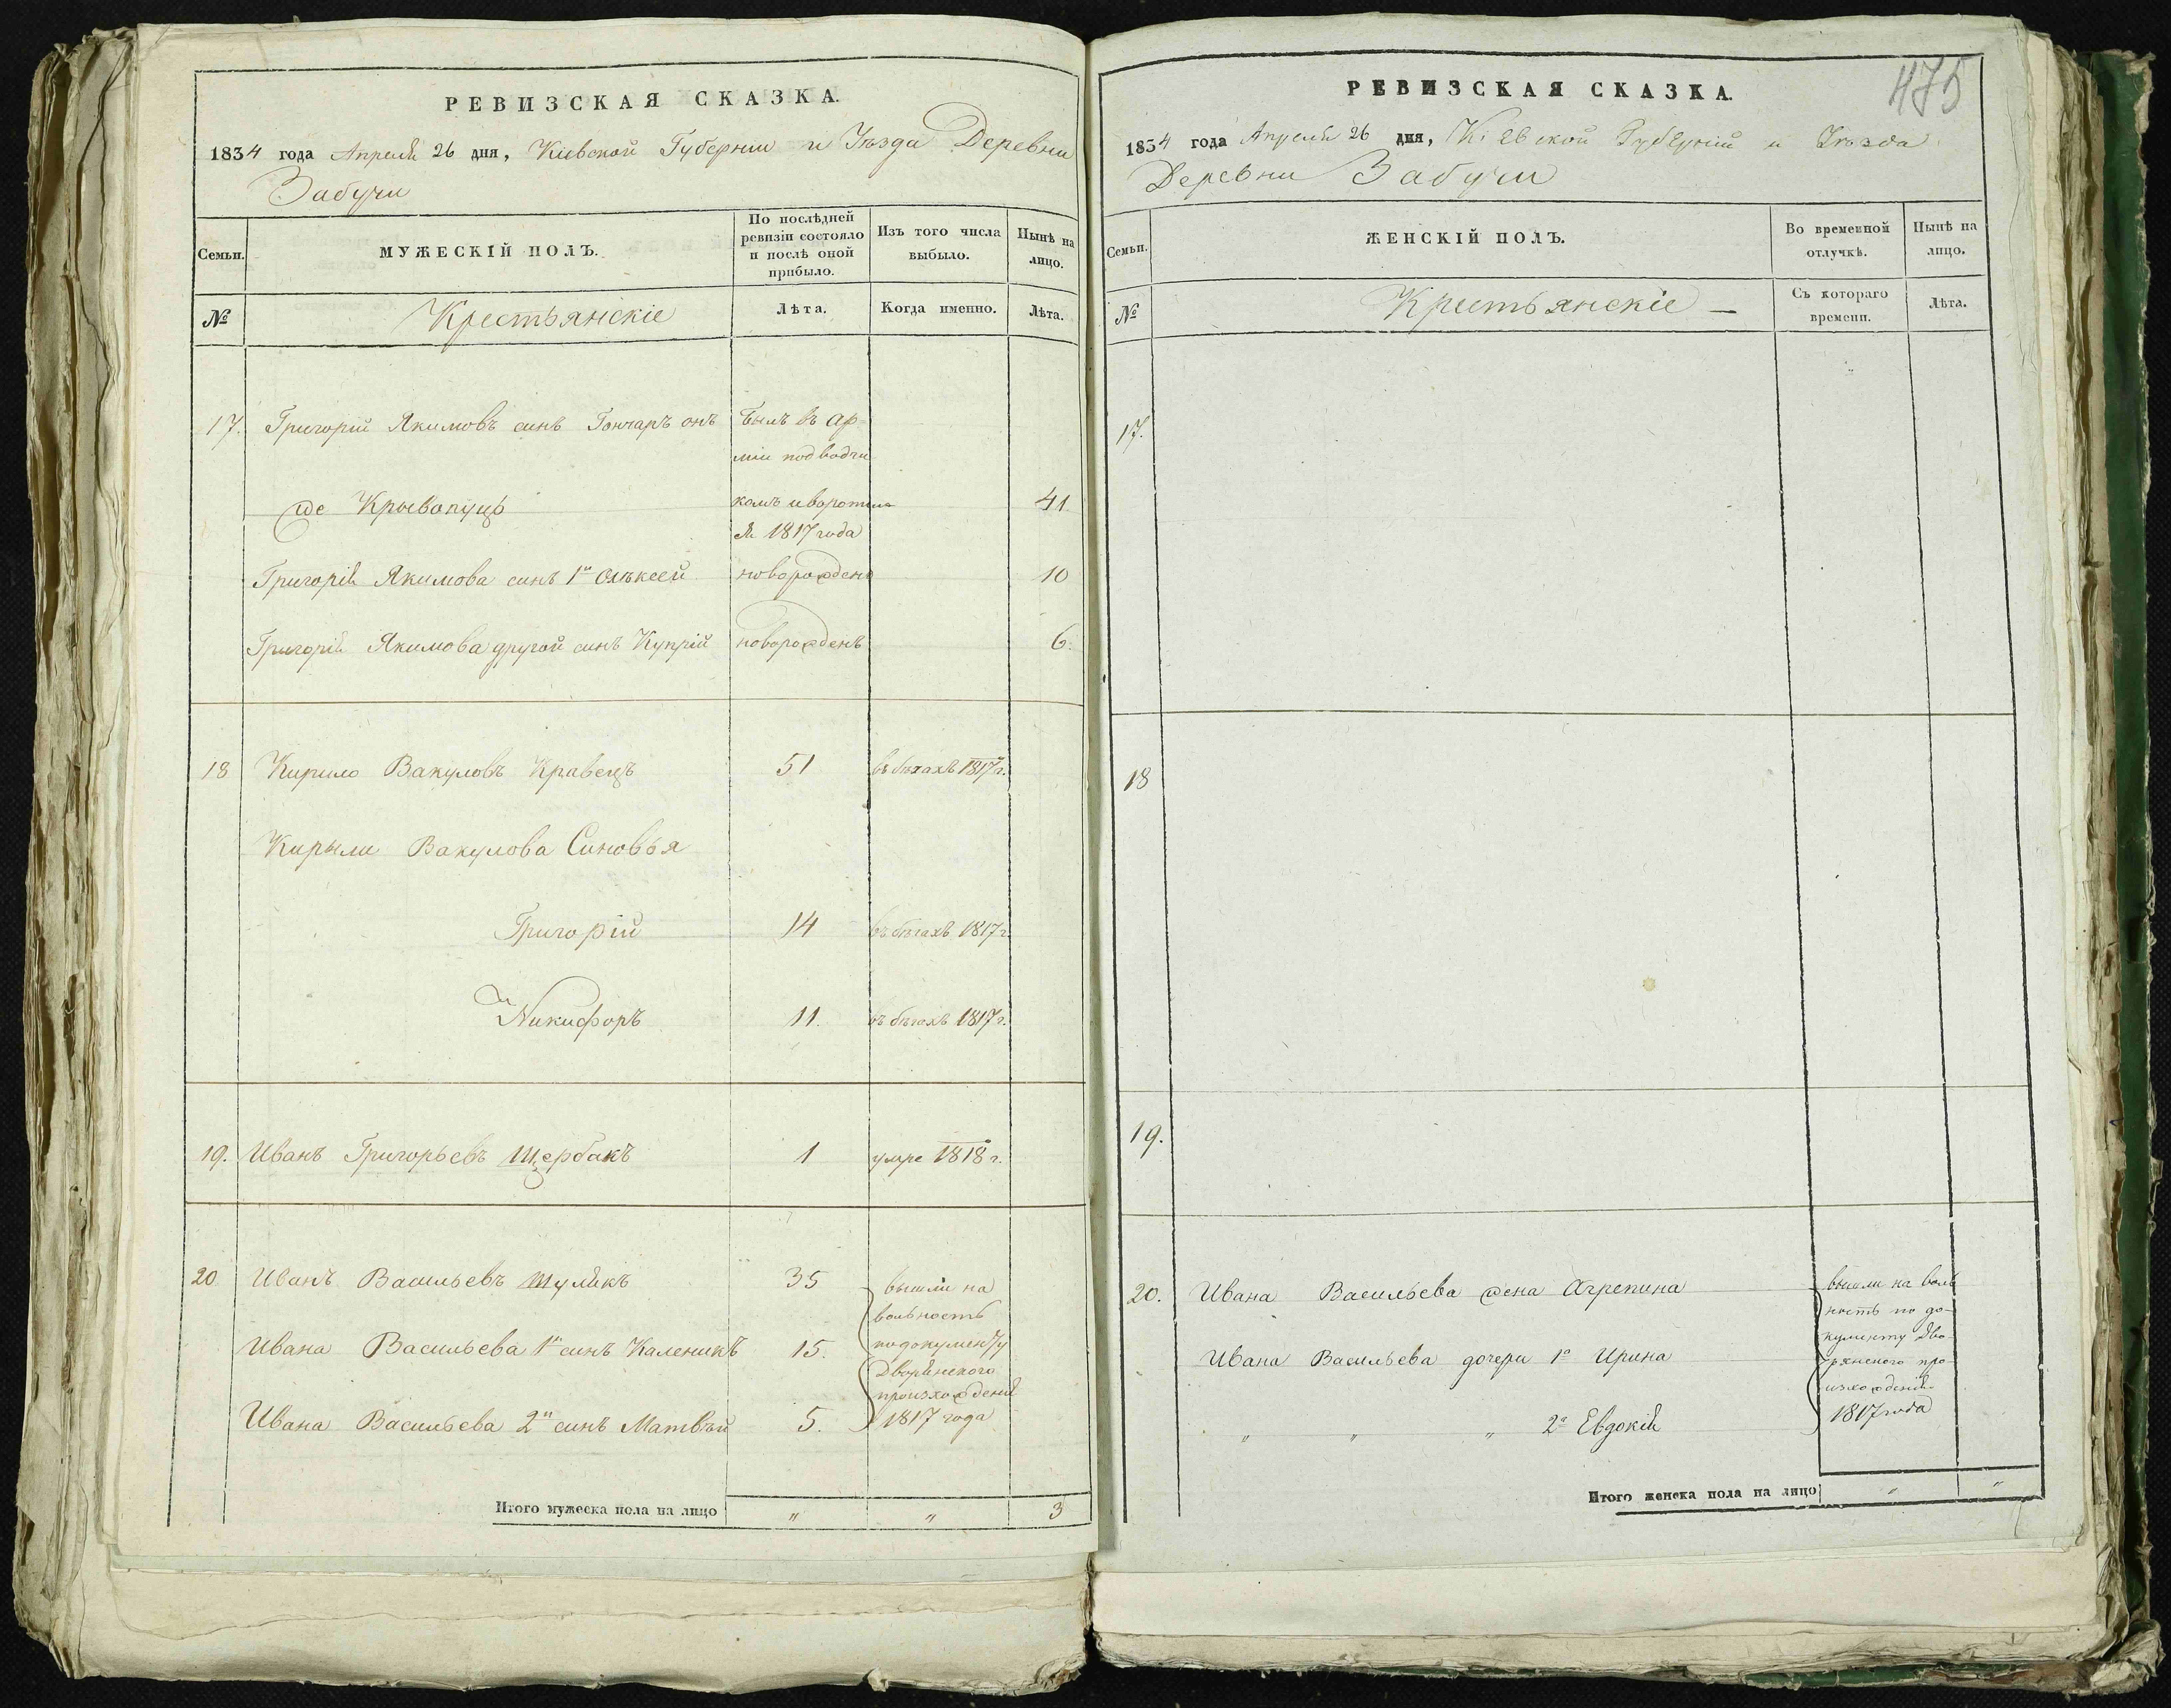 РЕВИЗСКАЯ СКАЗКА.
1834 года Апреля 26 дня, Кіевской Губернии и Уѣзда Деревни
Забучи
Семьи.
МУЖЕСКІЙ ПОЛЪ.
По послѣдней
ревизіи состояло
и послѣ оной
прибыло.
Изъ того числа
выбыло.
Нынѣ на
лицо.
№
Крестьянскіе
Лѣта.
Когда именно.
Лѣта.
17. Григорій Якимовъ синъ Гончаръ онъ
былъ въ ар-
міи подводчи
же Крывопуцъ
комъ и воротил
ся 1817 года
41.
Григорія Якимова синъ 1й Олѣксей
новорожденъ
10
Григорія Якимова другой синъ Купрій
новорожденъ
6.
18 Кирило Вакуловъ Кравецъ 51 въ бѣгахъ 1817 г.
Кирыла Вакулова Синовья
Григорій 14 въ бѣгахъ 1817 г.
и
Никифоръ 11. въ бѣгахъ 1817 г.
19. Иванъ Григорьевъ Щербакъ 1 умре 1818 г.
20 Иванъ Васильевъ Шулякъ 35
Ивана Васильева 1й синъ Каленикъ 15.
Ивана Васильева 2й синъ Матвѣй 5.
вышли на
вольность
по документу
Дворянского
происхожденія
1817 года
Итого мужеска пола на лицо " " 3
475
РЕВИЗСКАЯ СКАЗКА.
1834 года Апреля 26 дня, Кіевской Губерніи и Уѣзда
Деревни Забучи
Семьи.
ЖЕНСКІЙ ПОЛЪ.
Во временной
отлучкѣ.
Нынѣ на
лицо.
№
Крестьянскіе —
Съ котораго
времени.
Лѣта.
17.
18
19.
20. Ивана Васильева жена Агрепина
Ивана Васильева дочери 1я Ирина
" " " 2я Евдокія
вышли на воль
ность по до-
кументу Дво-
рянского про-
изхожденія
1817 года
Итого женска пола на лицо " "